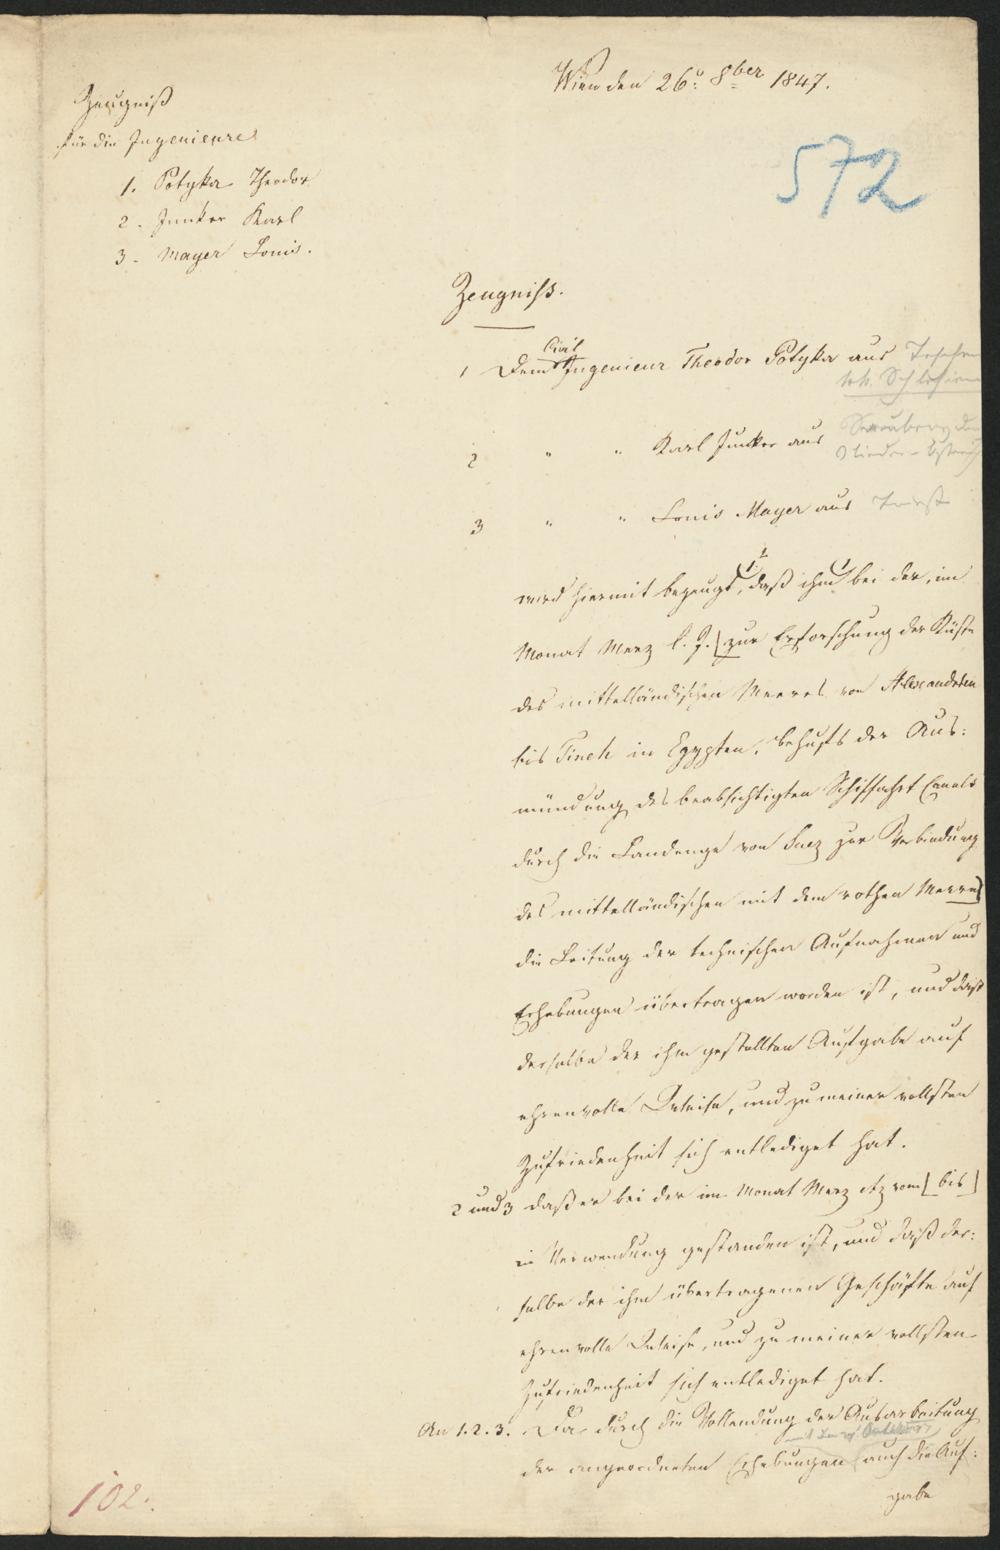 Wien den 26t 8ber 1847.
Zeugniß
für die Ingenieure
1. Potyka Theodor
2. Junker Karl
3. Mayer Louis.
572
Zeugniß.
Civil
1 Dem Ingenieur Theodor Potyka aus Teschen
Schlesien
2 " " Karl Junker aus
3 " " Louis Mayer aus Triest
wird hiermit bezeugt, daß ihm bei der, im
Monat Merz l. J. zur Erforschung der Küste
des mittelländischen Meeres von Alexandrien
bis Tineh in Egypten, behufs der Aus:
mündung des beabsichtigten Schiffahrt Canals
durch die Landenge von Suez zur Verbindung
des mittelländischen mit dem rothen Meere
die Leitung der technischen Aufnahmen und
Erhebungen übertragen worden ist, und daß
derselbe der ihm gestellten Aufgabe auf
ehrenvolle Weise, und zu meiner vollsten
Zufriedenheit sich entlediget hat.
2 und 3 daß er bei der im Monat Merz etz vom [ bis ]
in Verwendung gestanden ist, und daß der:
selbe der ihm übertragenen Geschäfte auf
ehrenvolle Weise, und zu meiner vollsten
Zufriedenheit sich entlediget hat.
An 1. 2. 3. Da durch die Vollendung der Ausarbeitung
der angeordneten Erhebungen auch die Auf:
gabe
102.